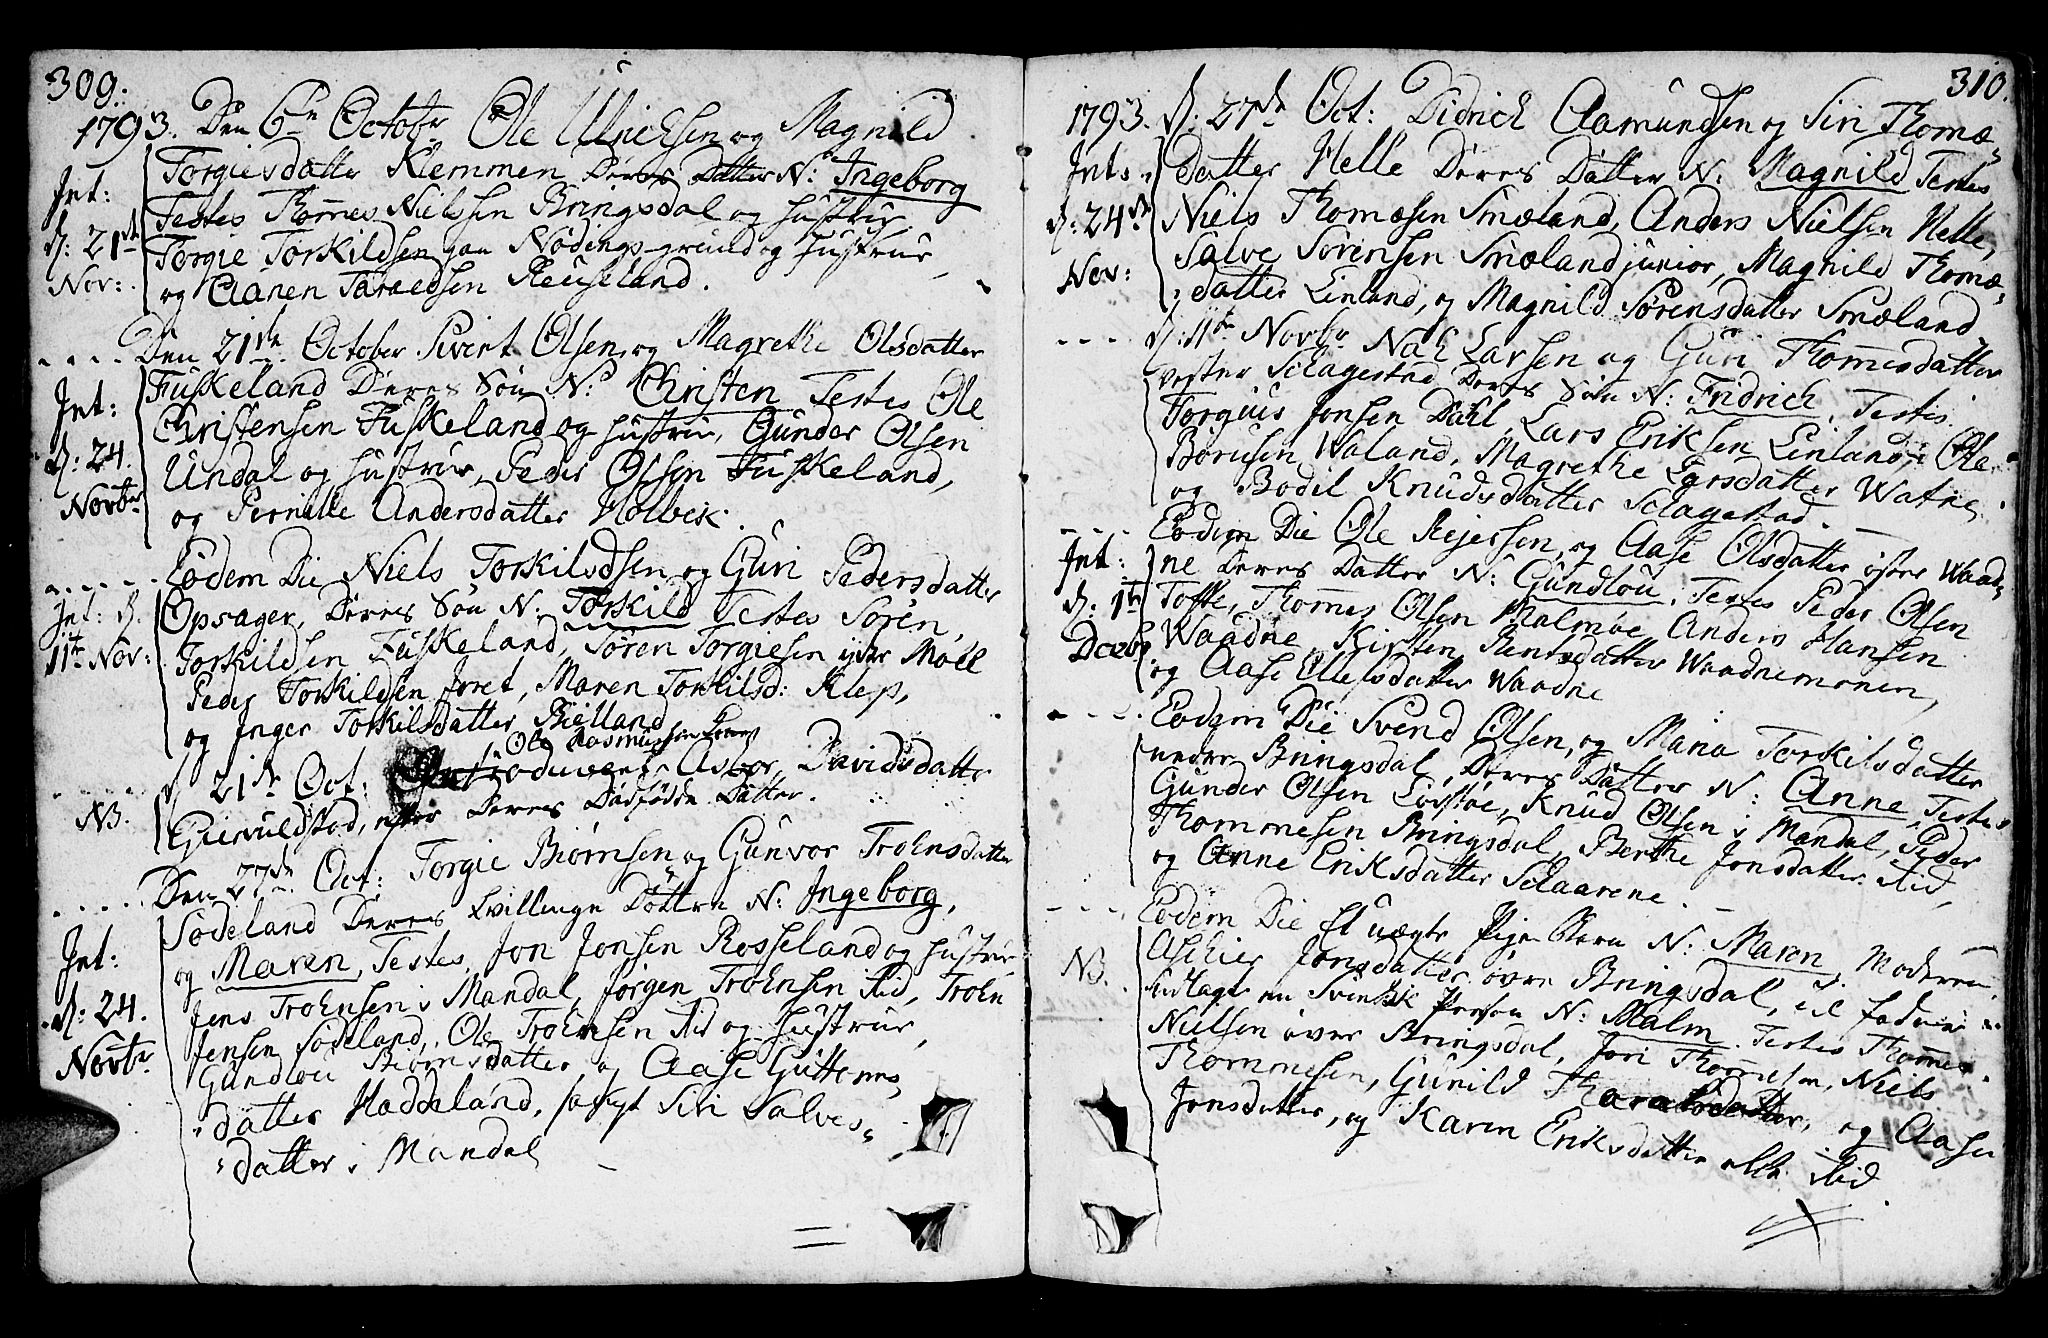 309.
1793. Den 6te October Ole Ulrichsen og Magnild
Torgiesdatter Klemmen Deres Datter N: Ingeborg
Int:
Testes Thomes Nielssen Bringsdal og Hustrue
d: 21de
Torgie Torkildsen paa Nødings-grund og Hustrue,
Nov:
og Aanen Taraldsen Reuseland.
Den 21de October Sivert Olsen, og Magrethe Olsdatter
Fuskeland Deres Søn N: Christen Testes Ole
Int:
Christensen Fuskeland og Hustrue, Gunder Olsen
d: 24.
Undal og Hustrue, Peder Olsen Fuskeland,
Novbr
og Pernille Andersdatter Holbek.
Eodem Die Niels Torkildsen og Guri Pedersdatter
Int: d.
Opsager, Deres Søn N: Torkild Testes Søren
11te Nov:
Torkildsen Fuskeland, Søren Torgiesen Møll
Peder Torkildsen Foret, Maren Torkilsd: Klep,
og Inger Torkilsdatter Bielland
Ole Rasmussen
d 21de Oct: Asbor Davidsdatter
NB.
Gierulstad, efter Deres Dødfødde Datter.
Den 27de Oct: Torgie Biørnsen og Gunvor Troensdatter
Sødeland Deres Tvillinge Døttre N: Ingeborg,
Int:
og Maren, Testes, Jon Jonsen Rosseland og Hustrue
d: 24.
Jens Troensen i Mandal, Jørgen Troensen ibid, Troen
Novbr
Jensen Sødeland, Ole Troensen ibid og Hustrue,
Gundlou Biørnsdatter, og Aase Guttorms
datter Haddeland, Siri Salves
datter i Mandal
310.
1793. d: 27de Oct: Didrich Aamundsen og Siri Thomæ
Int:
datter Helle Deres Datter N: Magnild Testes
d: 24de
Niels Thomæsen Smæland, Anders Nielsen Helle,
Nov:
Salve Sørensen Smæland junior, Magnild Thomæ
datter Linland, og Magnild Sørensdatter Smæland
d: 11te Novbr Larsen og Guri Thomesdatter
vester Sclagestad Deres Søn N: Fridrich, Testes
Torgius Jonsen Dahl, Lars Eriksen Linland, Ole
Borusen Waland, Magrethe Larsdatter Watne,
og Bodil Knudsdatter Sclagestad.
Eodem Die Ole Rejersen, og Aase Olsdatter øster Waad
Int:
ne Deres Datter N: Gundlou, Testes Peder Olsen
d: 1te
Tofte, Thomes Olsen Malmøe Anders Hansen
Decbr
Waadne, Kirsten Waadnemonen,
og Aase Ellefsdatter Waadne
Eodem Die Svend Olsen, og Maria Torkilsdatter
nedre Bringsdal, Deres Datter N: Anne, Testes
Gunder Olsen Løvstøe, Knud Olsen i Mandal, Peder
Thommesen Bringsdal, Berthe Jonsdatter ibid,
og Anne Eriksdatter Sclaarene.
Eodem Die Et uægte Pige Barn N: Maren, Moderen
NB.
Jonsdatter øvre Bringsdal, til Fader
udlagt en Svensk Person N: Malm. Testes Thomes
Nielsen øvre Bringsdal, Thomesen, Niels
Thommesen, Gunild Tharaldsdatter, og Aase
Jonsdatter, og Karen Eriksdatter alle ibid.